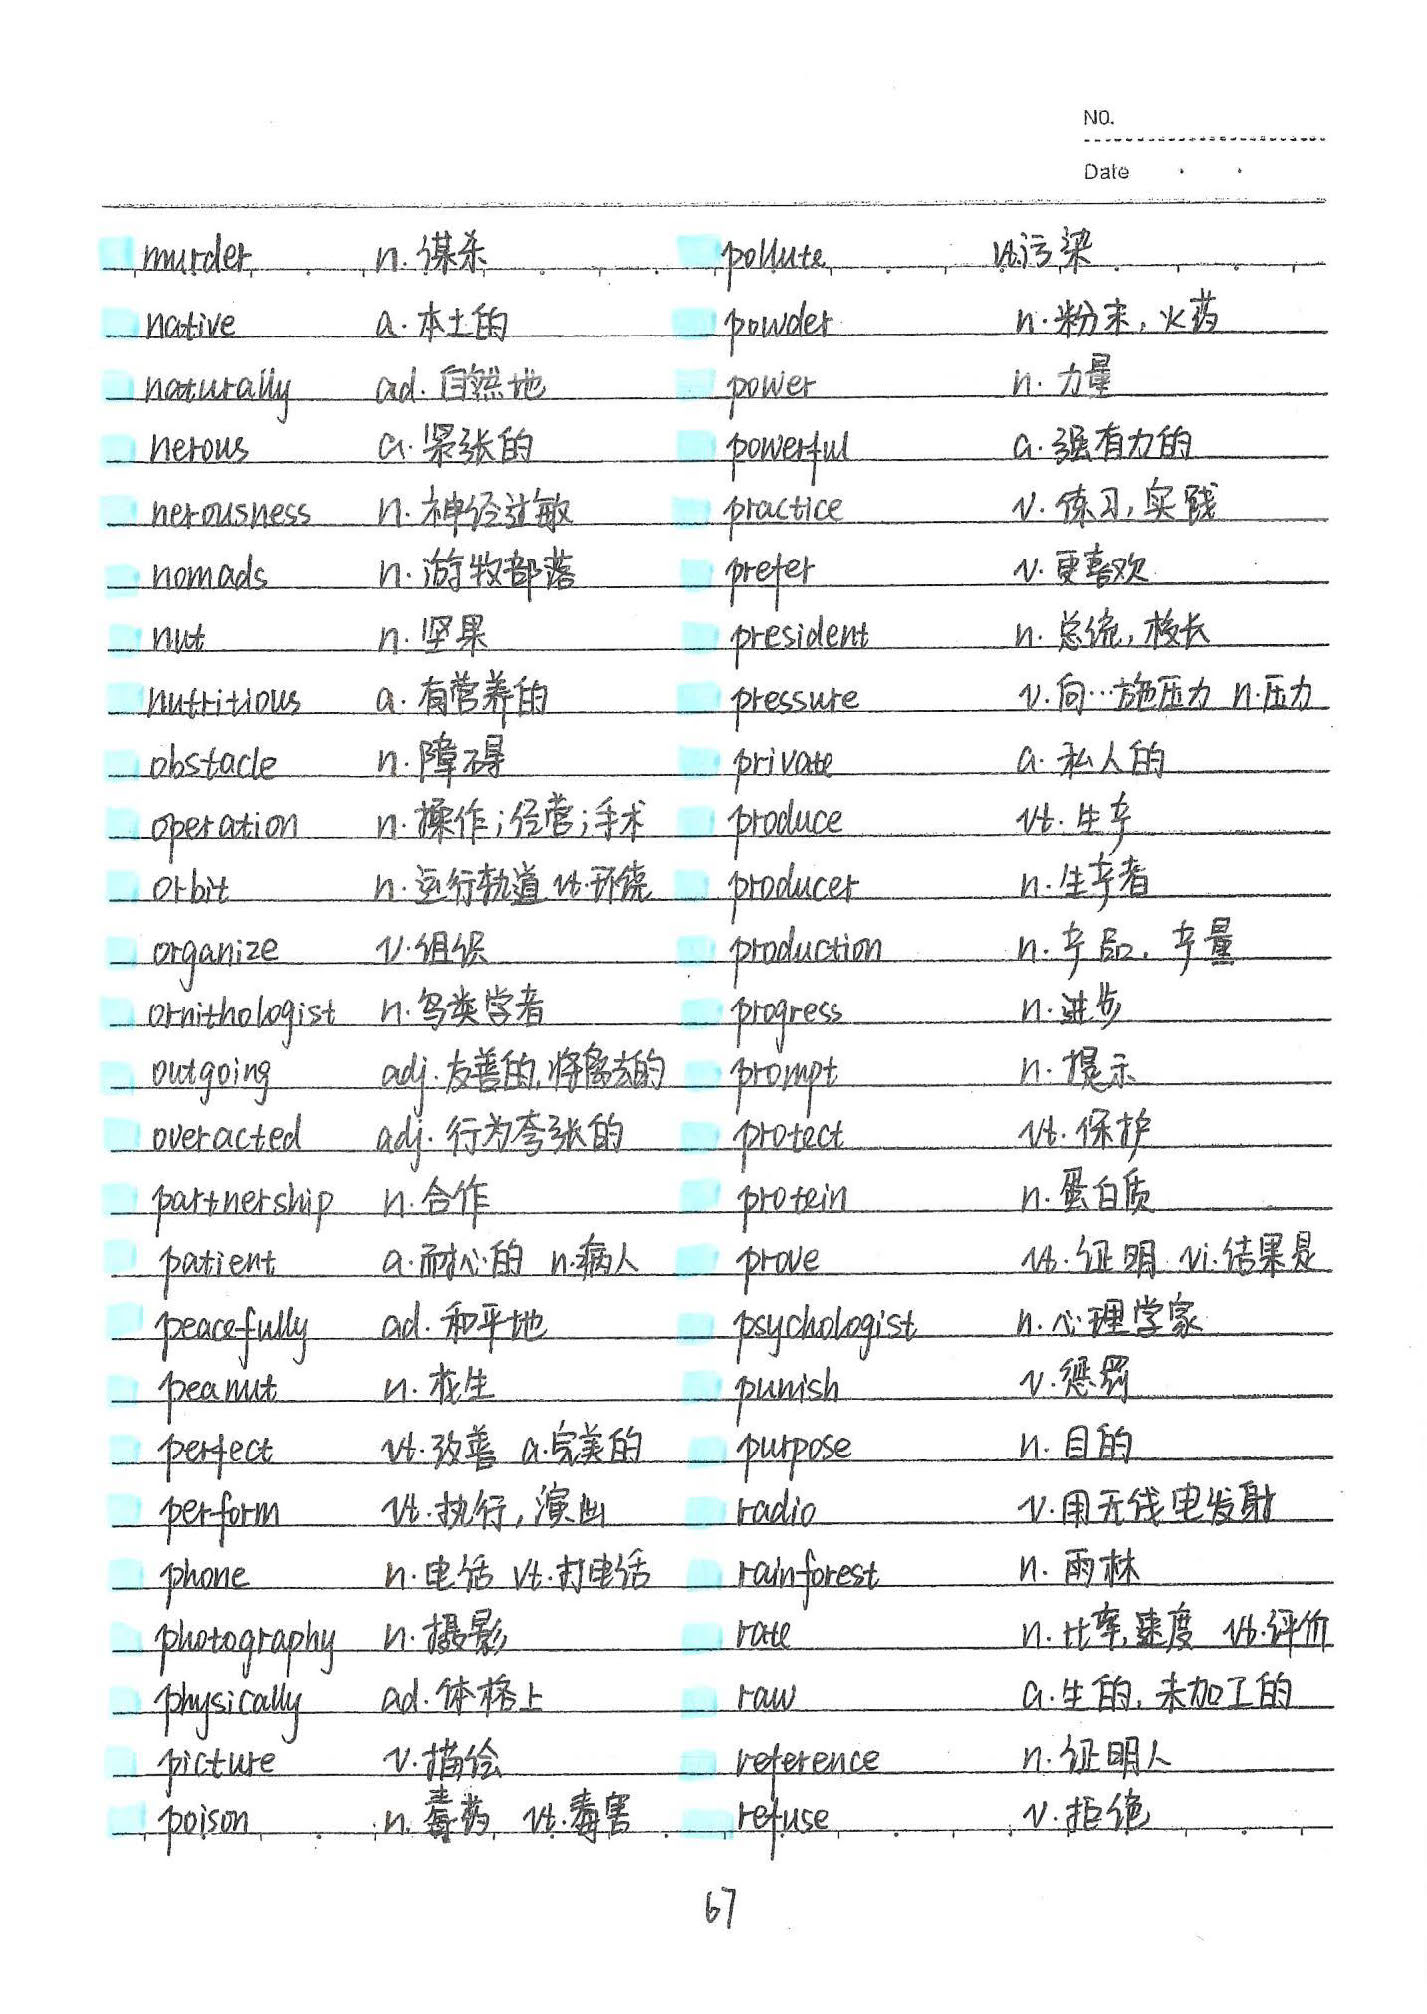 NO.
Date
murder n. 谋杀 pollute vt.污染
native a. 本土的 powder n. 粉末, 火药
naturally ad. 自然地 power n. 力量
nerous a. 紧张的 powerful a. 强有力的
nerousness n. 神经过敏 practice v. 练习, 实践
nomads n. 游牧部落 prefer v. 更喜欢
nut n. 坚果 president n. 总统, 校长
nutritious a. 有营养的 pressure v. 向…施压力 n.压力
obstacle n. 障碍 private a. 私人的
operation n. 操作;经营;手术 produce vt. 生产
orbit n. 运行轨道 vt.环绕 producer n. 生产者
organize v. 组织 production n. 产品, 产量
ornithologist n. 鸟类学者 progress n. 进步
outgoing adj. 友善的, 将离去的 prompt n. 提示
overacted adj. 行为夸张的 protect vt. 保护
partnership n. 合作 protein n. 蛋白质
patient a. 耐心的 n.病人 prove vt. 证明 vi.结果是
peacefully ad. 和平地 psychologist n. 心理学家
peanut n. 花生 punish v. 惩罚
perfect vt. 改善 a.完美的 purpose n. 目的
perform vt. 执行, 演出 radio v. 用无线电发射
phone n. 电话 vt.打电话 rainforest n. 雨林
photography n. 摄影 rate n. 比率, 速度 vt.评价
physically ad. 体格上 raw a. 生的, 未加工的
picture v. 描绘 reference n. 证明人
poison n. 毒药 vt.毒害 refuse v. 拒绝
67